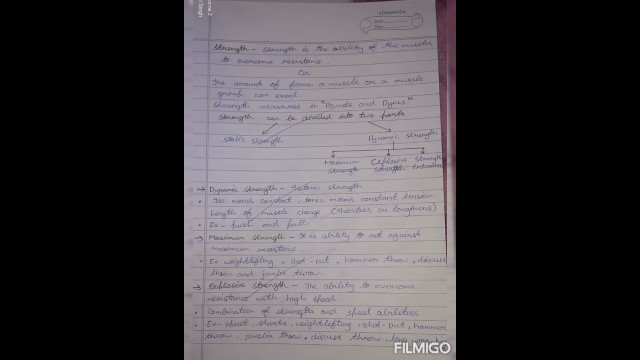 Strength - Strength is the ability of the muscles
to overcome resistance.
Or
The amount of force a muscle or a muscle
group can exert.
Strength measures in "Pounds and Dynes"
Strength can be divided into two parts
Static strength Dynamic strength
Maximum strength Explosive strength Strength Endurance
→ Dynamic strength - Isotonic strength
• Iso means constant, tonic means constant tension
Length of muscle change (shortens or lengthens)
• Ex- push and pull
→ Maximum strength - It is ability to act against
maximum resistance
• Ex weightlifting, shot-put, hammer throw, discus
throw and javelin throw.
→ Explosive strength - The ability to overcome
resistance with high speed.
• Combination of strength and speed abilities
• Ex- starts, weightlifting, shot-put, hammer
throw, javelin throw, discus throw, long
FILMIGO